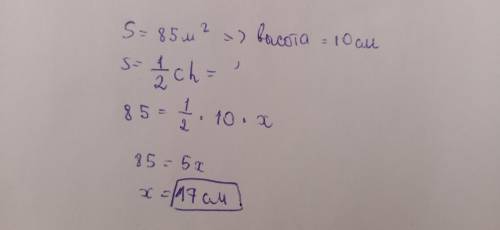 S = 85м² => высота = 10см
S = 1/2 ch =
85 = 1/2 · 10 · x
85 = 5x
x = 17см